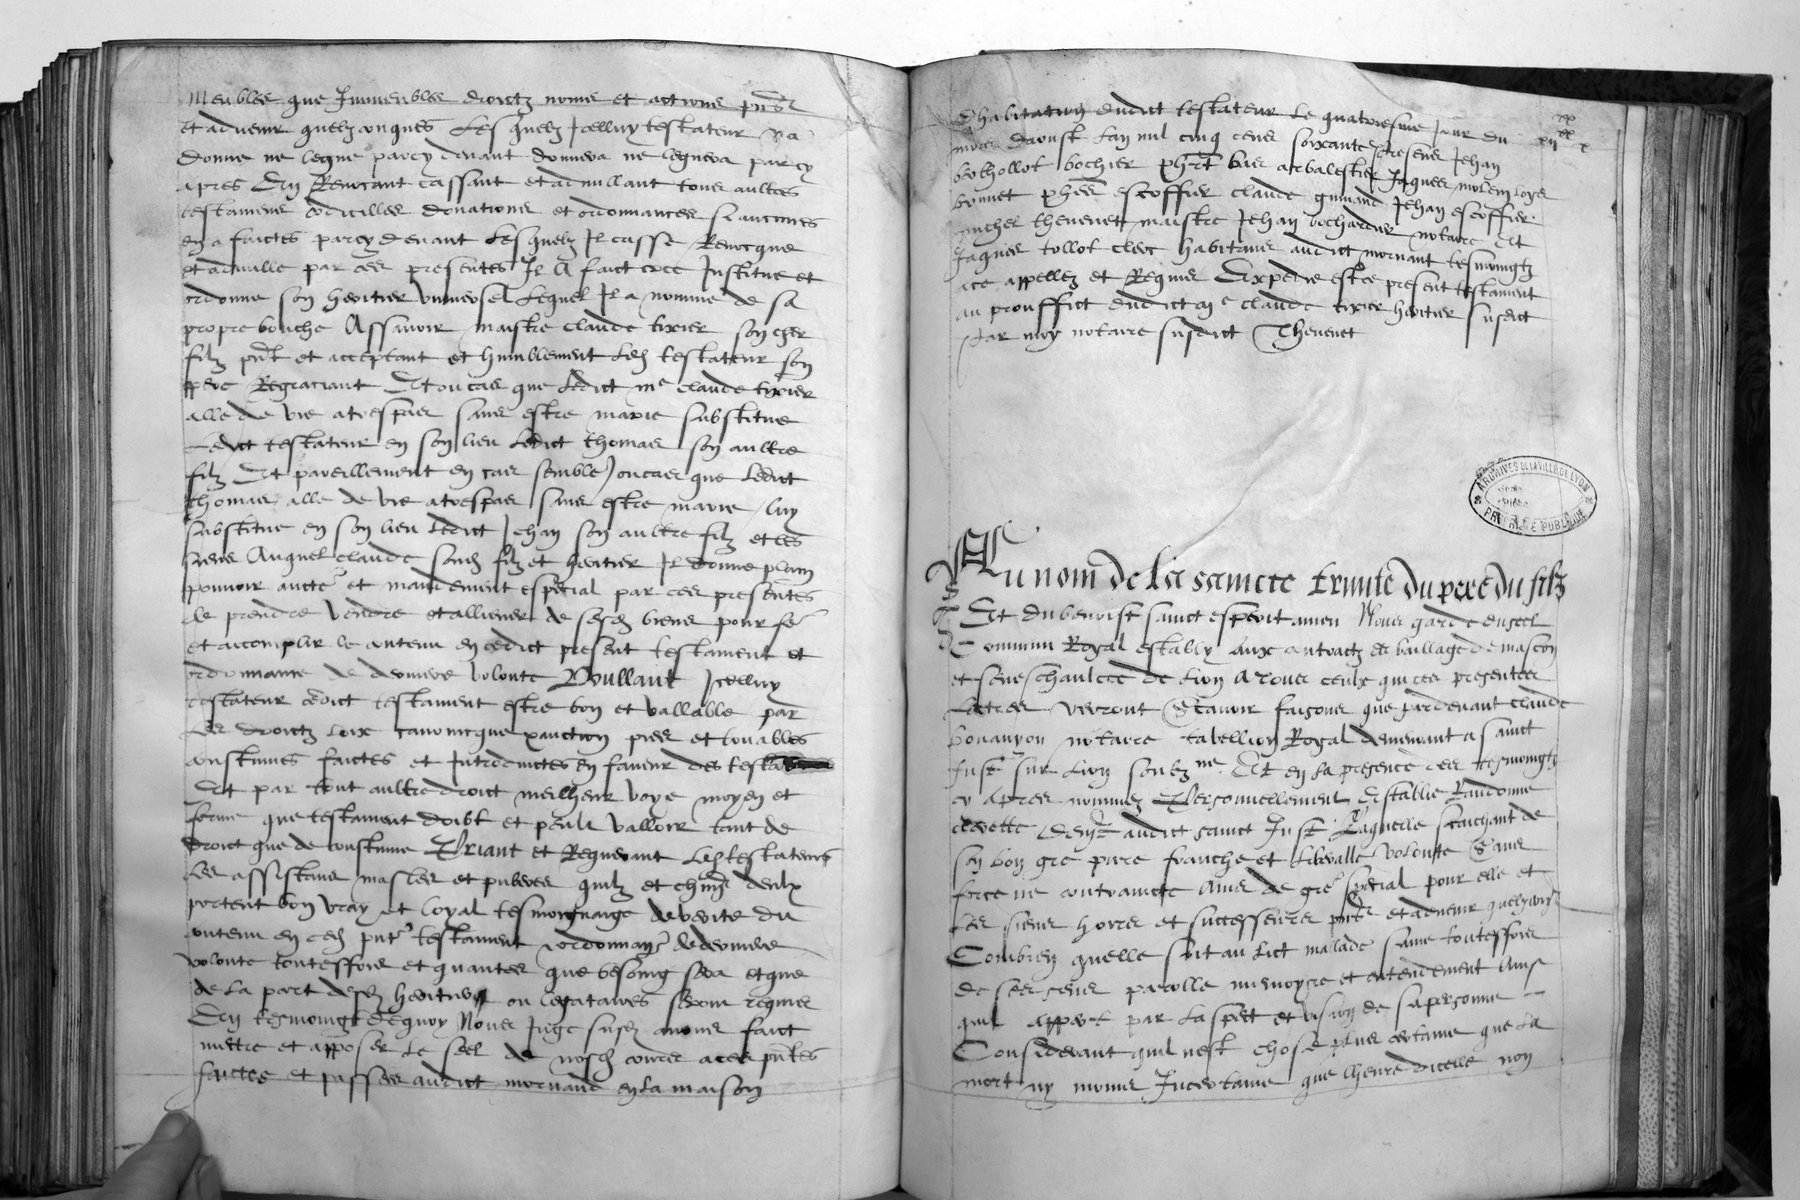 Meubles que Immeubles droictz noms et actions pntz
et advenir quelzconques Lesquelz Icelluy testateur na
donne ne legue parcy devant donnera ne leguera parcy
apres En Revocant cassant et adnullant tous aultres
testamens codicilles donations et ordonnances si aucunes
en a faictes parcy devant Lesquelz Il casse Revocque
et adnulle par ces presentes Il A faict cree Institue et
ordonne son heritier universel Lequel Il a nomme de sa
propre bouche Assavoir maistre claude tixier son cher
filz pnt et acceptant et humblement Led testateur son
pere Regraciant Et ou cas que Ledict me claude tixier
alle de vie a trespas sans estre marie substitue
Ledict testateur en son lieu Ledict thomas son aultre
filz Et pareillement en cas semble ou cas que Ledict
thomas alle de vie a trespas sans estre marie luy
substitue en son lieu Ledict Jehan son aultre filz et les
siens Auquel claude sond filz et heritier Il donne plain
pouvoir aucte et mandement especial par ces presentes
de prendre vendre et alliener de sesd biens pour fe
et acomplir le contenu en cedict present testament et
ordonnance de derniere volonte Voullant Icelluy
testateur cedict testament estre bon et vallable par
les droictz loix canonicque xanction pies et louables
coustumes faictes et Introduictes en faveur des
Et par tout aultre droict meilheur voye moyen et
forme que testament doibt et peult valloir tant de
droict que de coustume Priant et Requerant Led testateur
les assistans masles et puberes quilz et chmg deulx
portent bon vray et loyal tesmoignaige de verite du
contenu en ced pnt testament ordonnance de derniere
volonte touteffois et quantes que besoing sera et que
de la part desd heritiers ou legataires seront requis
En tesmoing dequoy Nous Juge susd avons faict
mettre et apposer Le seel de nosd cours a ces pntes
faictes et passees audict mornand en la maison
dhabitation dudict testateur Le quatriesme Jour du
moys daoust Lan mil cinq cens soixante Presens Jehan
bothollot bochier bas arbalestier Jaques
bonnet escoffier claude guinand Jehan escoffier
michel thevenet maistre Jehan bochardier notaire Et
Jaques tollot clerc habitans audict mornant tesmoingtz
a ce appellez et Requis Expedie est ce present testament
au prouffict dudict me claude tixier heritier susdict
Par moy notaire susdict Thevenet
ARCHIVES DE LA VILLE DE LYON
Au nom de la saincte trinite du pere du filz
Et du benoist sainct esperit amen Nous garde du seel
Commun Royal estably Aux contractz es bailliage de mascon
et seneschaulcee de Lion A tous ceulx qui ces presentes
Lectres verront Scavoir faisons que pardevant claude
notaire tabellion Royal demeurant a sainct
Just sur Lion soubzne Et en la presence des tesmoingtz
cy apres nommez Personnellement Establie
audict sainct Just Laquelle saichant de
son bon gre pure franche et Liberalle volonte sans
force ne contraincte Ains de gre special pour elle et
Les siens hoirs et successeurs pntz et advenir quelzconqz
Combien quelle soit au lict malade saine touteffois
de ses sens parolle memoyre et entendement Ains
quil appert par Laspect et vision de sa personne
Considerant quil nest chose plus certaine que La
mort ny moins Incertaine que lheure dicelle non